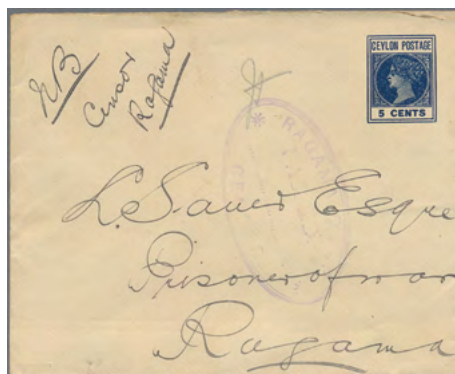 EB
Censor
Ragama
CEYLON POSTAGE
5 CENTS
RAGAM
L. Sauer Esqre
Prisoner of war
Ragama